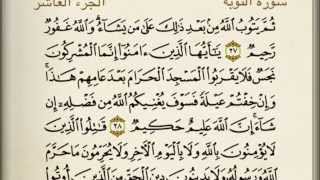 سورة التوبة الجزء العاشر
ثُمَّ يَتُوبُ ٱللَّهُ مِنۢ بَعْدِ ذَٰلِكَ عَلَىٰ مَن يَشَآءُ ۗ وَٱللَّهُ غَفُورٌ
رَّحِيمٌ ٢٧ يَٰٓأَيُّهَا ٱلَّذِينَ ءَامَنُوٓا۟ إِنَّمَا ٱلْمُشْرِكُونَ
نَجَسٌ فَلَا يَقْرَبُوا۟ ٱلْمَسْجِدَ ٱلْحَرَامَ بَعْدَ عَامِهِمْ هَٰذَا ۚ
وَإِنْ خِفْتُمْ عَيْلَةً فَسَوْفَ يُغْنِيكُمُ ٱللَّهُ مِن فَضْلِهِۦٓ إِن
شَآءَ ۚ إِنَّ ٱللَّهَ عَلِيمٌ حَكِيمٌ ٢٨ قَٰتِلُوا۟ ٱلَّذِينَ
لَا يُؤْمِنُونَ بِٱللَّهِ وَلَا بِٱلْيَوْمِ ٱلْءَاخِرِ وَلَا يُحَرِّمُونَ مَا حَرَّمَ
ٱللَّهُ وَرَسُولُهُۥ وَلَا يَدِينُونَ دِينَ ٱلْحَقِّ مِنَ ٱلَّذِينَ أُوتُوا۟